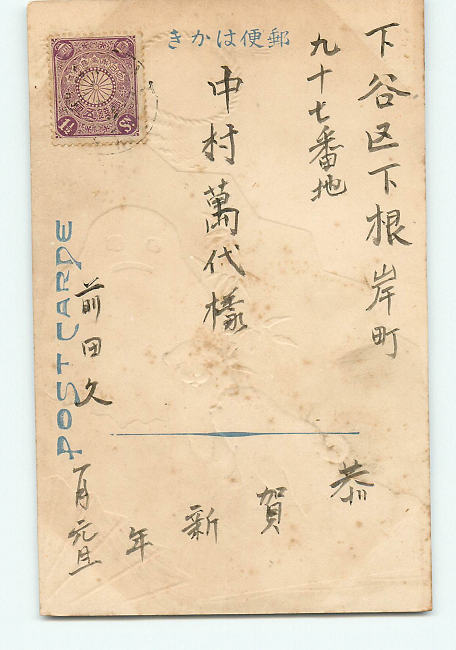 きかは便郵
下谷区下根岸町
九十七番地
中村萬代様
前田久
POST CARPE
恭賀新年
一月元旦
1½ Sn.